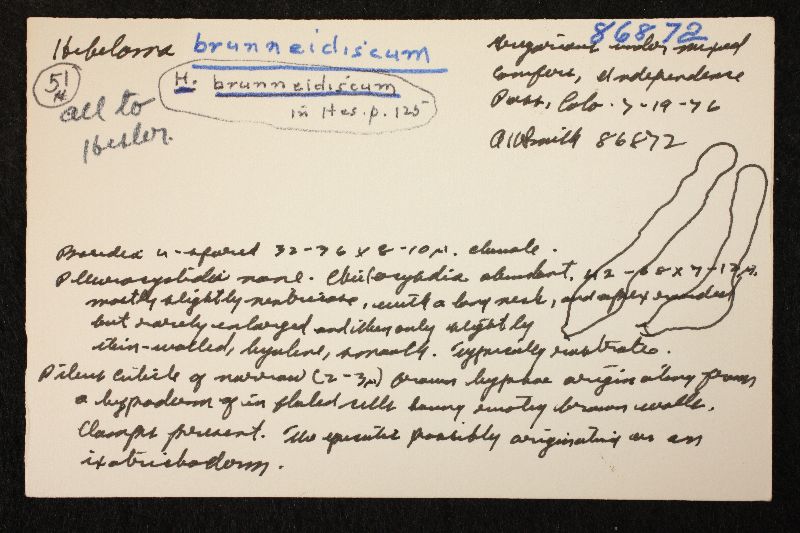 Hebeloma brunneidiscum
86872
51
H.
H. brunneidiscum
in Hes. p. 125
all to
Hesler.
Gregarious under mixed
conifers, Independence
Pass, Colo. 7-19-76
AHSmith 86872
Basidia 4-spored 32-36 x 8-10µ. clavate.
Pleurocystidia none. Cheilocystidia abundant, 42-68 x 7-12µ.
mostly slightly ventricose, with a long neck, and apex rounded
but rarely enlarged and then only slightly
thin-walled, hyaline, smooth. Typically
Pileus cuticle of narrow (2-3µ) brown hyphae originating from
a hypoderm of inflated cells having rusty brown walls.
Clamps present. The possibly originating as an
ixotrichoderm.